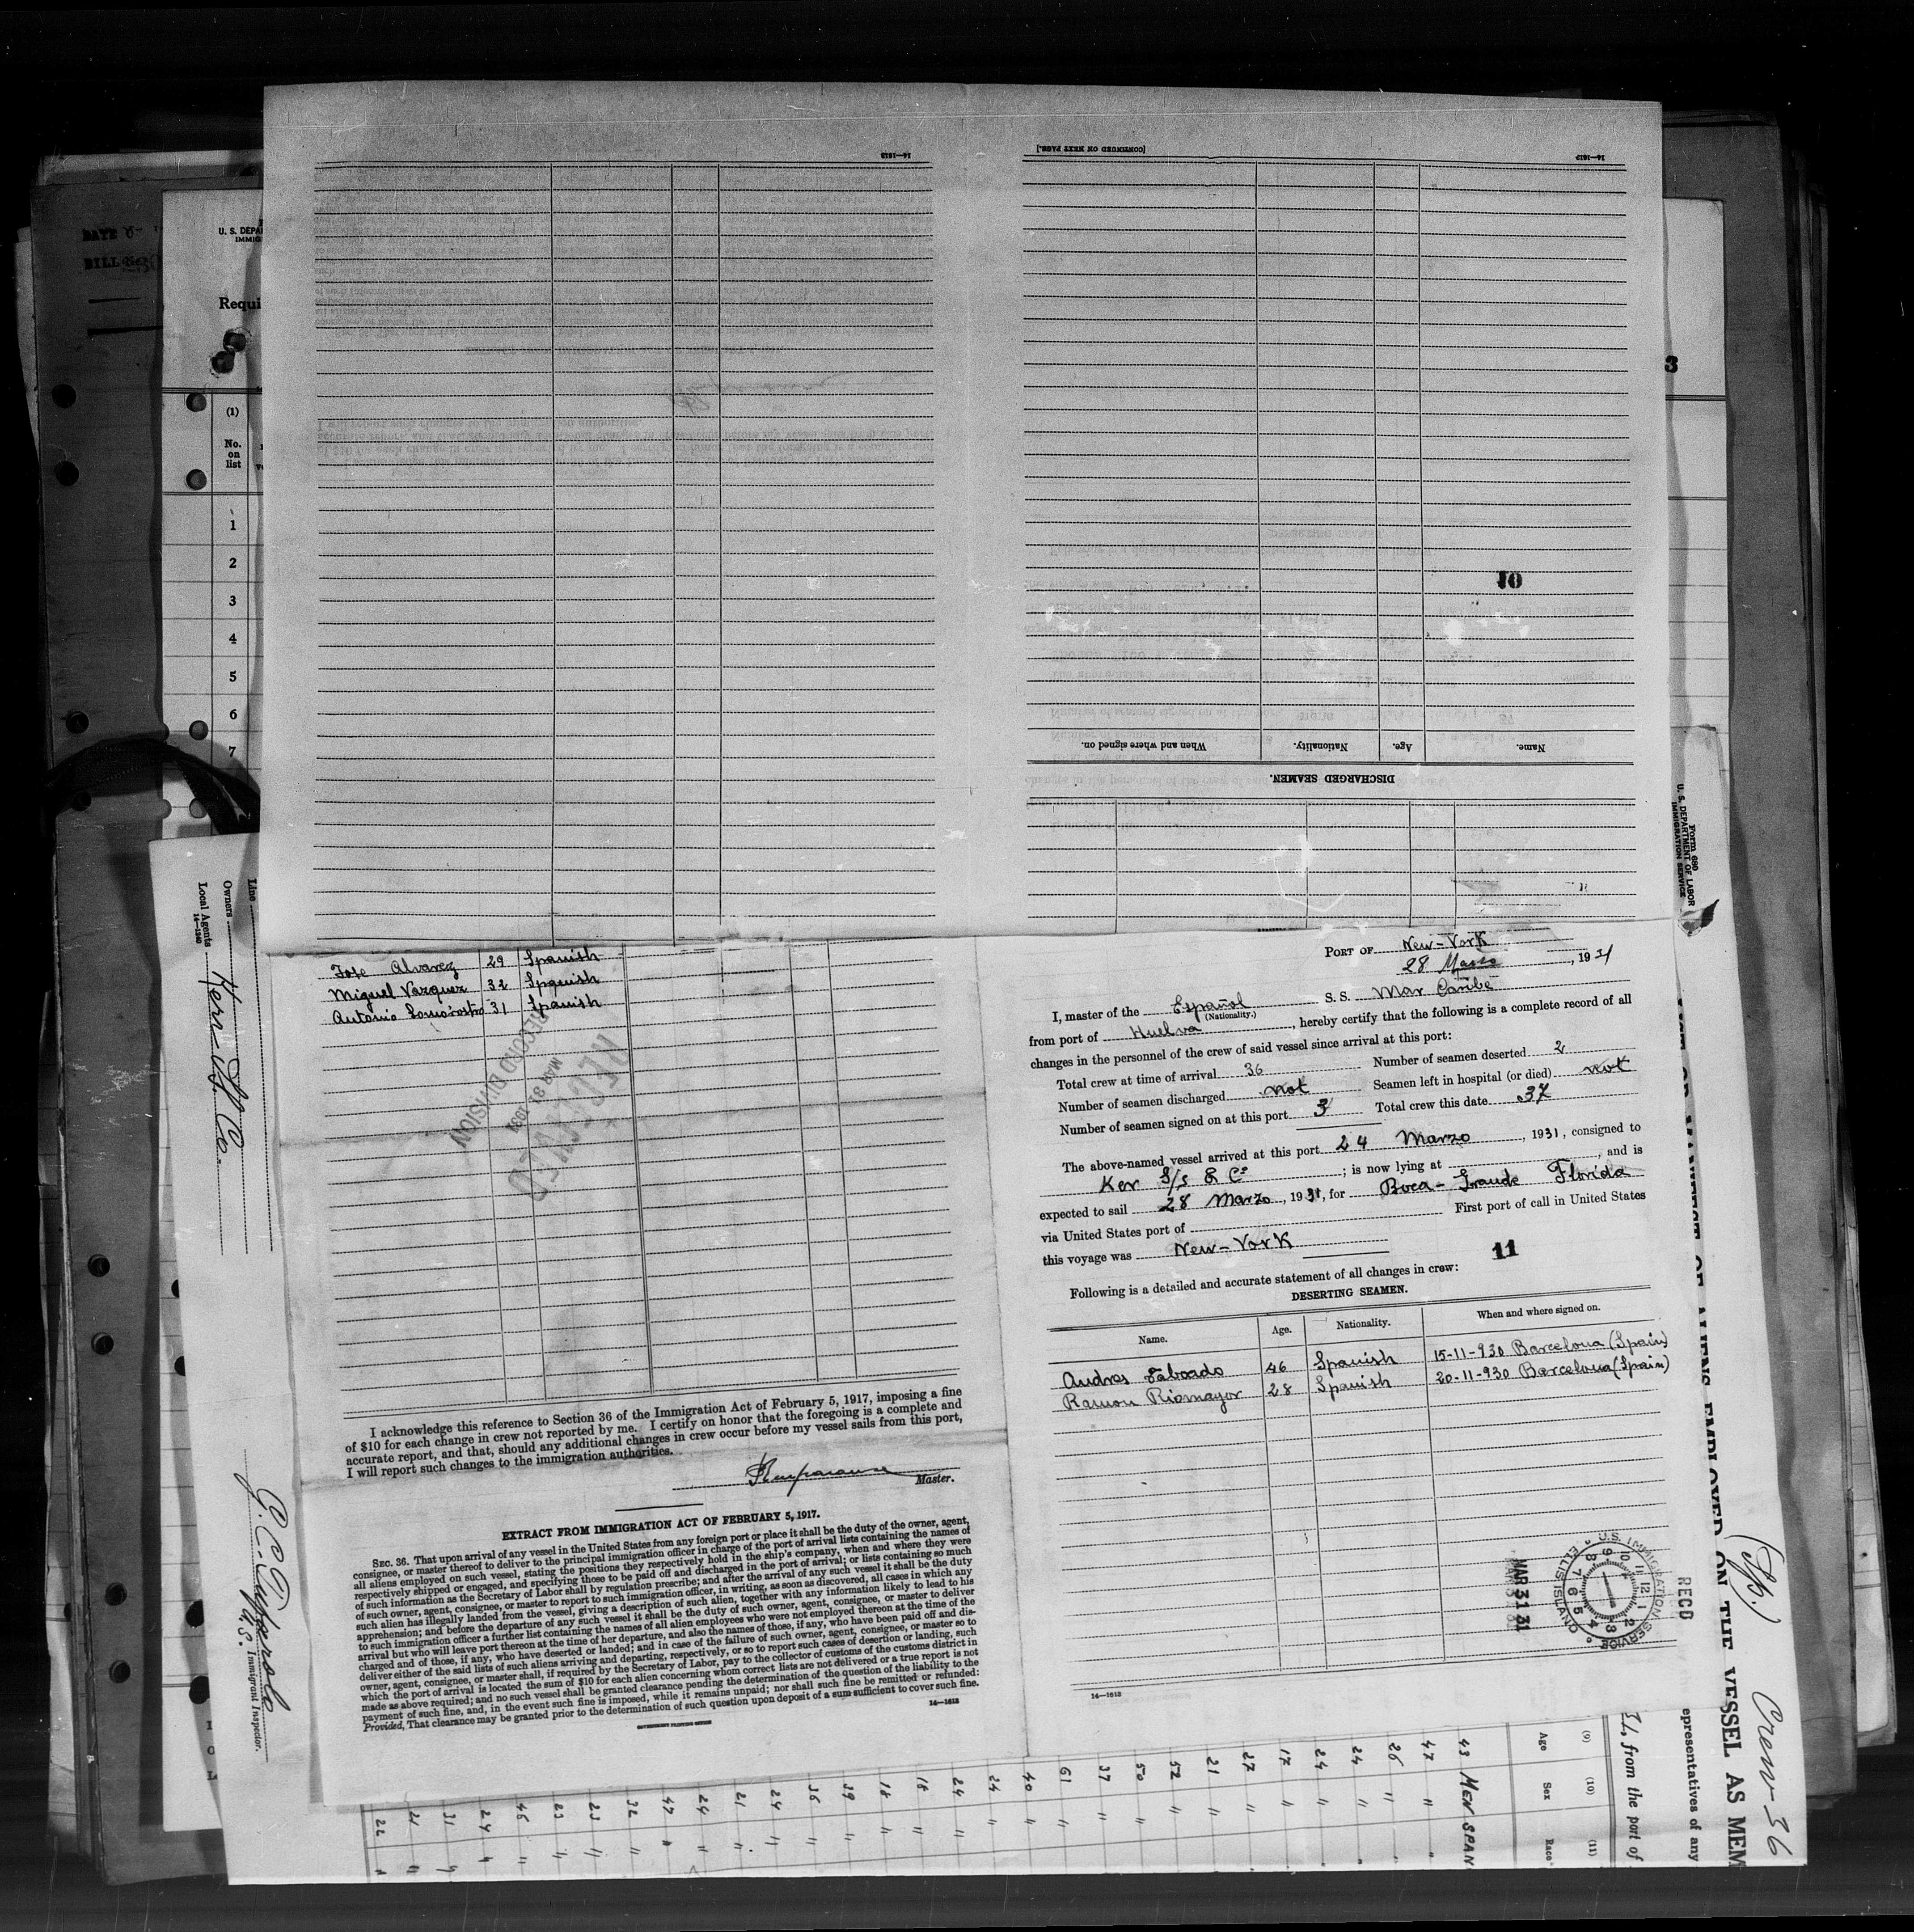 14—1613
[CONTINUED ON NEXT PAGE.]
14—1613
DATE
BILL
U. S. DEPAR
IMMIG
Requi
3
(1)
No.
on
list
1
2
3
4
5
6
7
10
Name.
Age.
Nationality.
When and where signed on.
DISCHARGED SEAMEN.
Form 680
U. S. DEPARTMENT OF LABOR
IMMIGRATION SERVICE
Line
Owners
Local Agents Kerr S/S Co.
14—1240
Jose Alvarez 29 Spanish
Miguel Vazquez 32 Spanish
Antonio Somorostro 31 Spanish
RECEIVED
MAR 31 1931
RECORD DIVISION
I acknowledge this reference to Section 36 of the Immigration Act of February 5, 1917, imposing a fine
of $10 for each change in crew not reported by me. I certify on honor that the foregoing is a complete and
accurate report, and that, should any additional changes in crew occur before my vessel sails from this port,
I will report such changes to the immigration authorities.
Master.
EXTRACT FROM IMMIGRATION ACT OF FEBRUARY 5, 1917.
SEC. 36. That upon arrival of any vessel in the United States from any foreign port or place it shall be the duty of the owner, agent,
consignee, or master thereof to deliver to the principal immigration officer in charge of the port of arrival lists containing the names of
all aliens employed on such vessel, stating the positions they respectively hold in the ship's company, when and where they were
respectively shipped or engaged, and specifying those to be paid off and discharged in the port of arrival; or lists containing so much
of such information as the Secretary of Labor shall by regulation prescribe; and after the arrival of any such vessel it shall be the duty
of such owner, agent, consignee, or master to report to such immigration officer, in writing, as soon as discovered, all cases in which any
such alien has illegally landed from the vessel, giving a description of such alien, together with any information likely to lead to his
apprehension; and before the departure of any such vessel it shall be the duty of such owner, agent, consignee, or master to deliver
to such immigration officer a further list containing the names of all alien employees who were not employed thereon at the time of the
arrival but who will leave port thereon at the time of her departure, and also the names of those, if any, who have been paid off and dis-
charged and of those, if any, who have deserted or landed; and in case of the failure of such owner, agent, consignee, or master so to
deliver either of the said lists of such aliens arriving and departing, respectively, or so to report such cases of desertion or landing, such
owner, agent, consignee, or master shall, if required by the Secretary of Labor, pay to the collector of customs of the customs district in
which the port of arrival is located the sum of $10 for each alien concerning whom correct lists are not delivered or a true report is not
made as above required; and no such vessel shall be granted clearance pending the determination of the question of the liability to the
payment of such fine, and, in the event such fine is imposed, while it remains unpaid; nor shall such fine be remitted or refunded:
Provided, That clearance may be granted prior to the determination of such question upon deposit of a sum sufficient to cover such fine.
GOVERNMENT PRINTING OFFICE
14—1613
U.S. Immigrant Inspector.
PORT OF New-York
28 Marzo, 1931
I, master of the Español S. S. Mar Caribe
(Nationality.)
from port of Huelva, hereby certify that the following is a complete record of all
changes in the personnel of the crew of said vessel since arrival at this port:
Total crew at time of arrival 36 Number of seamen deserted 2
Number of seamen discharged not Seamen left in hospital (or died) not
Number of seamen signed on at this port 3 Total crew this date 37
The above-named vessel arrived at this port 24 Marzo, 1931, consigned to
Ker S/s & Cº; is now lying at , and is
expected to sail 28 Marzo, 1931, for Boca-Grande Florida
via United States port of First port of call in United States
this voyage was New-York
11
Following is a detailed and accurate statement of all changes in crew:
DESERTING SEAMEN.
Name. Age. Nationality. When and where signed on.
Andres Taboado 46 Spanish 15-11-930 Barcelona (Spain)
Ramon Riomayor 28 Spanish 20-11-930 Barcelona (Spain)
MAR 31 31
U.S. IMMIGRATION SERVICE
ELLIS ISLAND
REC'D
14—1613
OF ALIENS EMPLOYED ON THE VESSEL AS MEM
(Sp.)
Crew 36
epresentatives of any
31, from the port of
(9) (10) (11)
Age Sex Race
43 MEN SPAN
47 " "
26 "
24 "
24 "
17 "
27 "
21 "
52 "
50 "
37 "
61 "
40 "
24 "
24 "
18 "
18 "
39 "
36 "
24 "
21 "
24 "
47 "
32 "
23 "
23 "
46 "
24 "
31 "
21 "
22 "